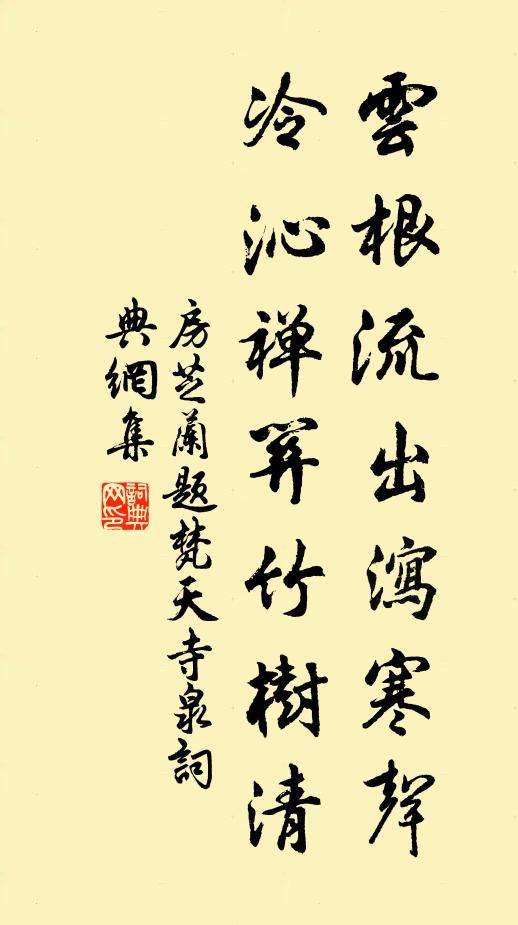 雲根流出瀉寒聲
冷沁禪關竹樹清
房芝蘭題梵天寺泉詞
典網集
詞典
网印